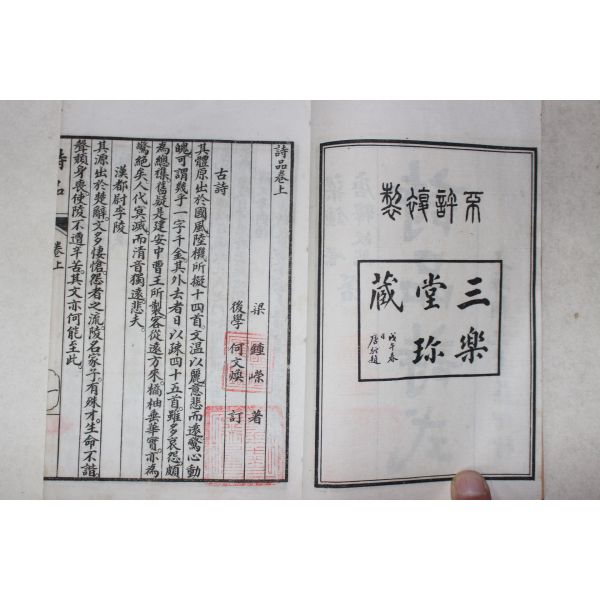 不許復製
三樂堂珎藏
戊午春
題
詩品卷上
梁 鍾嶸 著
後學 何文煥 訂
古詩
其體原出於國風陸機所擬十四首文温以麗意悲而遠驚心動
魄可謂幾乎一字千金其外去者日以疎四十五首雖多哀怨頗
為總雜舊疑是建安中曹王所製客從遠方來橘柚垂華實亦為
驚絕矣人代冥滅而清音獨遠悲夫
漢都尉李陵
其源出於楚辭文多悽愴怨者之流陵名家子有殊才生命不諧
聲頹身喪使陵不遭辛苦其文亦何能至此
詩品 卷上